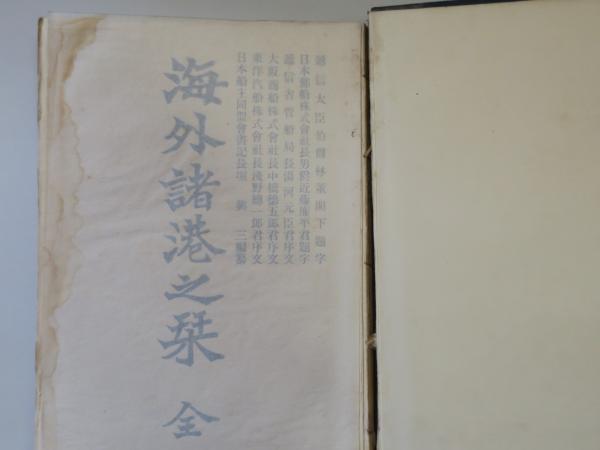 遞信大臣伯爵林董閣下題字
日本郵船株式會社長男爵近藤廉平君題字
遞信省管船局長湯河元臣君序文
大阪商船株式會社長中橋德五郎君序文
東洋汽船株式會社長淺野總一郎君序文
日本船主同盟會書記長堀 三編纂
海外諸港之栞 全